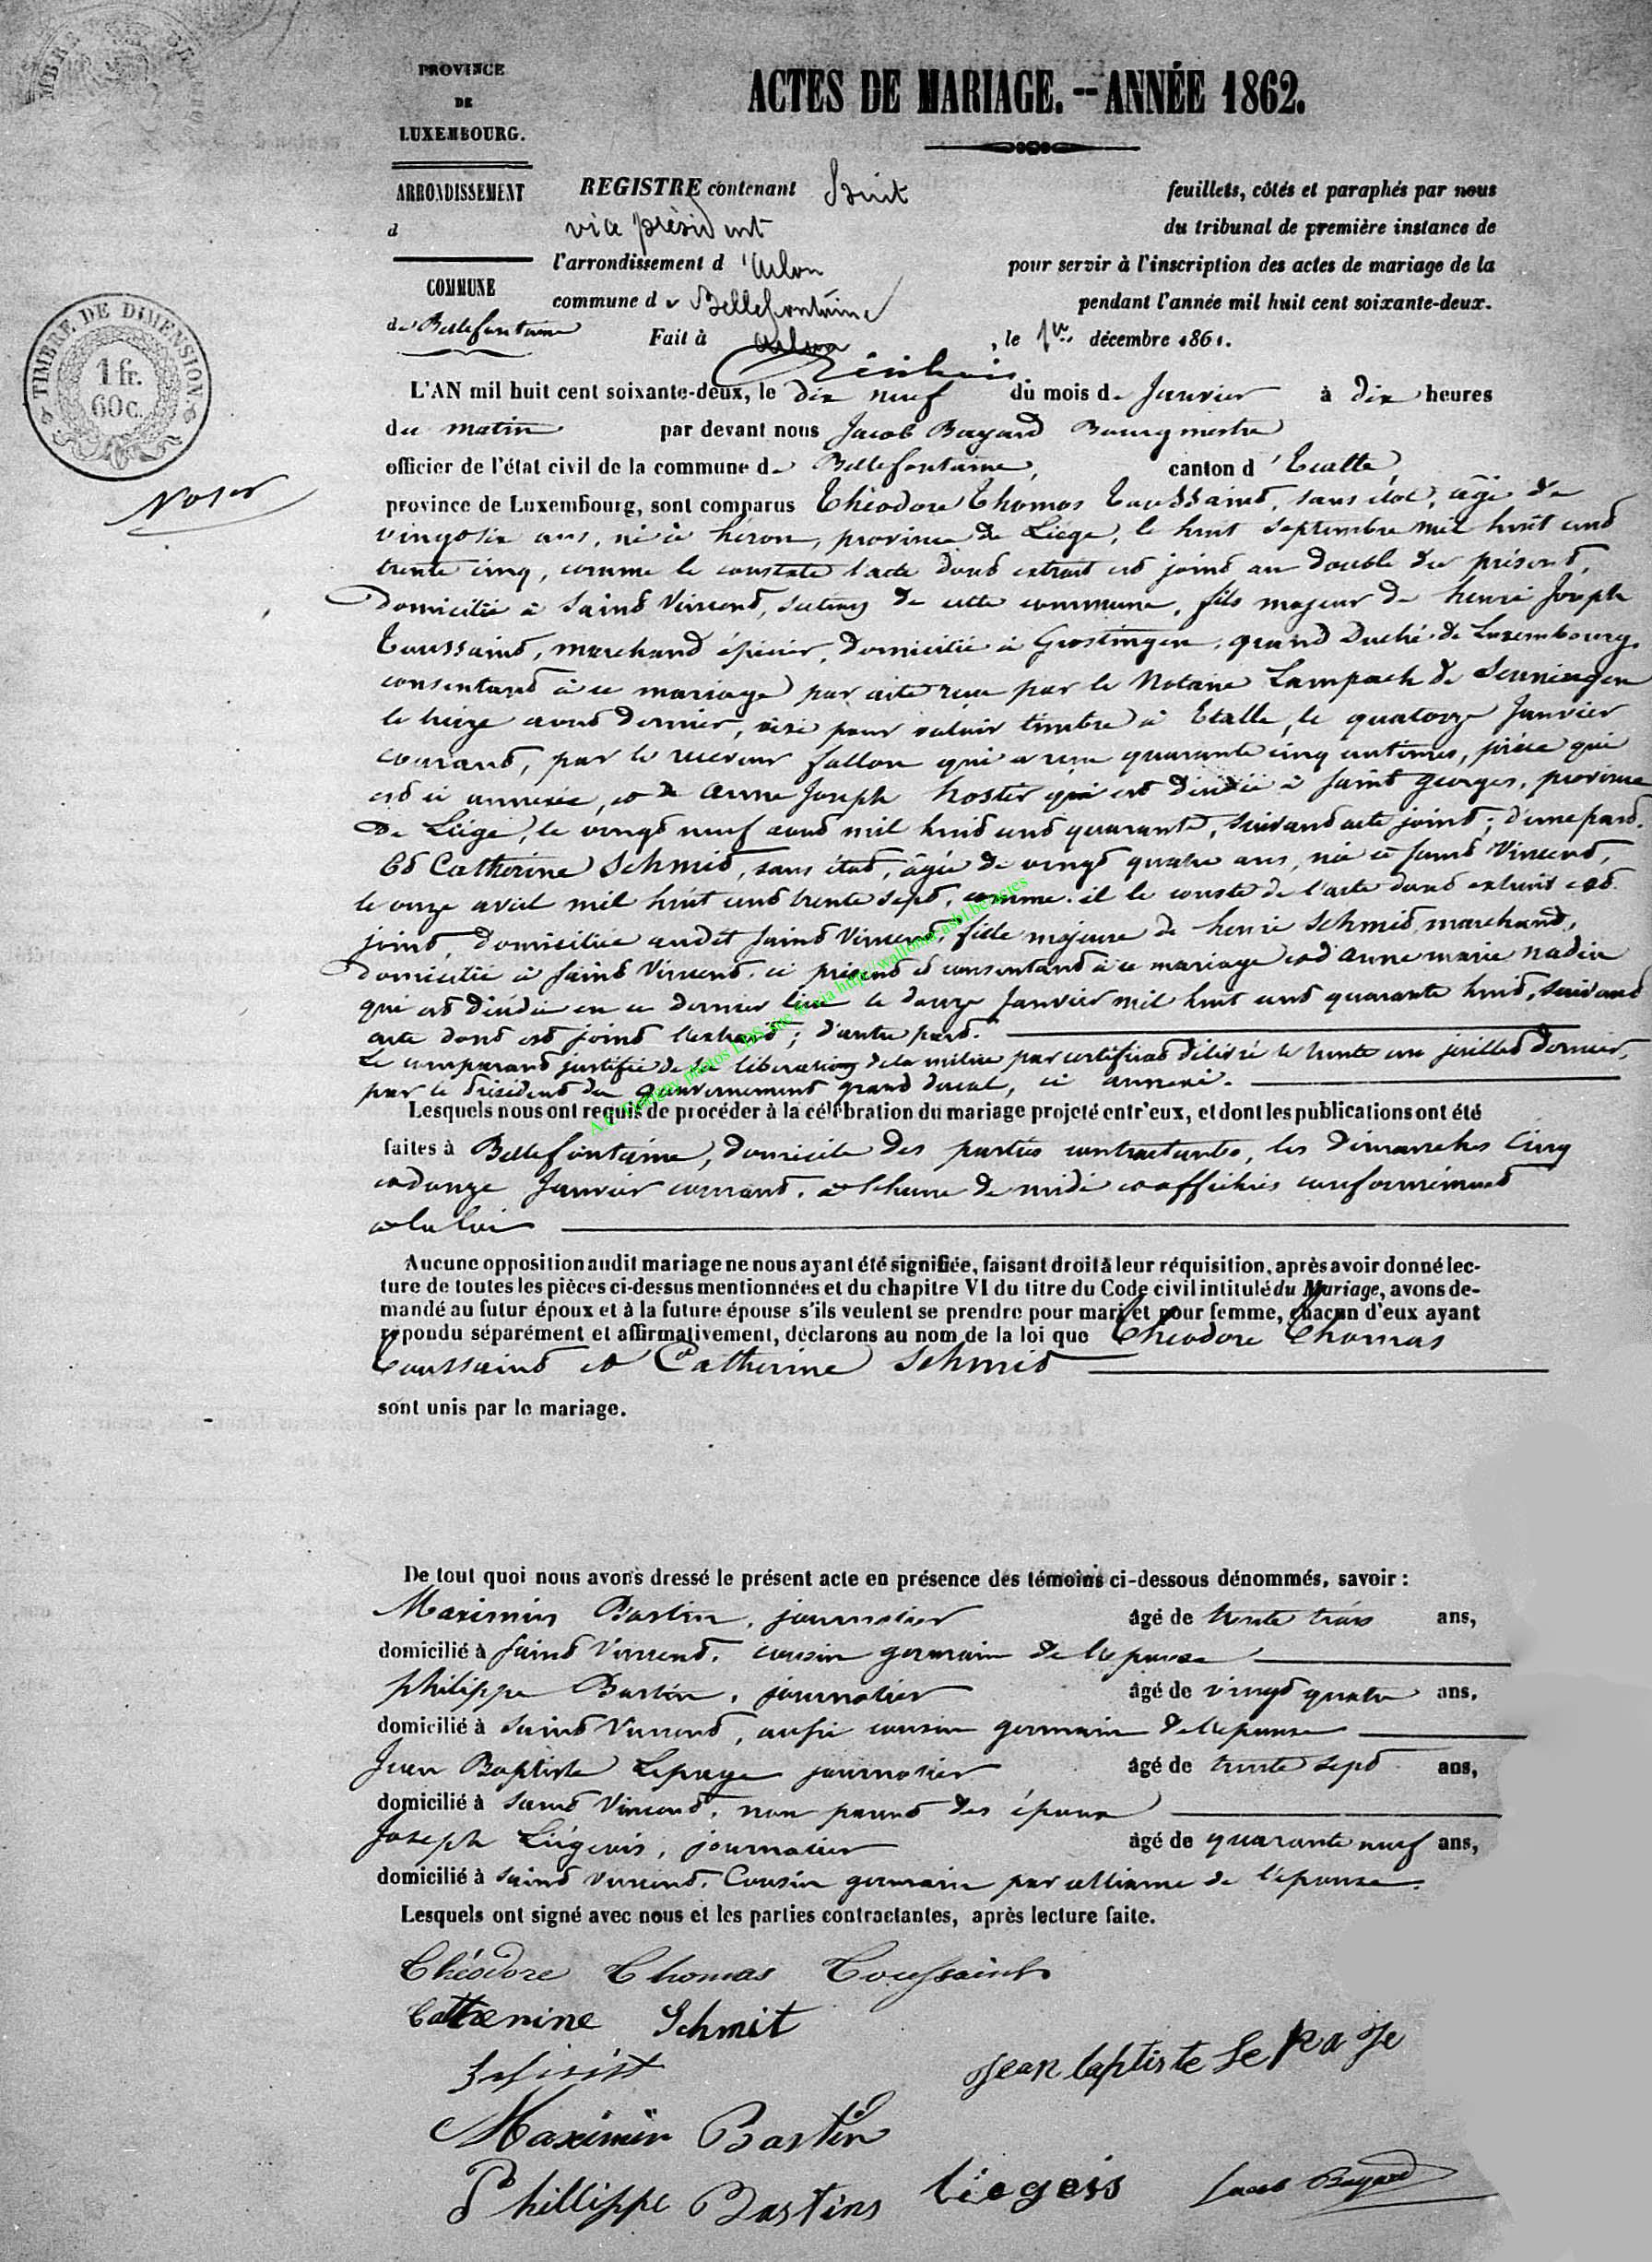 PROVINCE
DE
LUXEMBOURG.
ACTES DE MARIAGE. -- ANNÉE 1862.
ARRONDISSEMENT
d
COMMUNE
de Bellefontaine
REGISTRE contenant huit feuillets, côtés et paraphés par nous
vice président du tribunal de première instance de
l'arrondissement d'Arlon pour servir à l'inscription des actes de mariage de la
commune de Bellefontaine pendant l'année mil huit cent soixante-deux.
Fait à Arlon, le 1er décembre 1861.
TIMBRE DE DIMENSION
1 fr.
60 c.
L'AN mil huit cent soixante-deux, le dix neuf du mois de Janvier à dix heures
du matin par devant nous Jacob Bayard Bourgmestre
officier de l'état civil de la commune de Bellefontaine, canton d'Etalle,
province de Luxembourg, sont comparus Théodore Thomas Toussaint, sans état, âgé de
vingt six ans, né à héron, province de Liége, le huit septembre mil huit cent
trente cinq, comme le constate l'acte dont extrait est joint au double du présent,
domicilié à Saint Vincent, section de cette commune, fils majeur de henri Joseph
Toussaint, marchand épicier, domicilié à Grostingen, grand Duché de Luxembourg,
consentant à ce mariage par acte reçu par le Notaire Lampach de
le treize aout dernier, visé pour valoir timbre à Etalle, le quatorze Janvier
courant, par le receveur fallon qui a reçu quarante cinq centimes, pièce qui
est ci annexée, et de anne Joseph hoster qui est décédée à Saint georges, province
de Liége, le vingt neuf aout mil huit cent quarante, suivant acte joint; d'une part.
Et Catherine Schmit, sans état, âgée de vingt quatre ans, née à Saint Vincent,
le onze avril mil huit cent trente sept, comme il le conste de l'acte dont extrait est
joint, domiciliée audit Saint Vincent, fille majeure de henri Schmit, marchand,
domicilié à Saint Vincent, ci présent et consentant à ce mariage et d'anne marie nadin
qui est décédée en ce dernier lieu le douze Janvier mil huit cent quarante huit, suivant
acte dont est joint l'extrait; d'autre part.
Le comparant justifie de sa libération de la milice par certificat délivré le trente un juillet dernier,
par le Président du gouvernement grand ducal, ci annexé.
A.C. photos LDS via http://wallonia-asbl.be/actes
Lesquels nous ont requis de procéder à la célébration du mariage projeté entr'eux, et dont les publications ont été
faites à Bellefontaine, domicile des parties contractantes, les dimanches Cinq
et douze Janvier courant, à l'heure de midi et affichées conformément
à la loi
Aucune opposition audit mariage ne nous ayant été signifiée, faisant droit à leur réquisition, après avoir donné lec-
ture de toutes les pièces ci-dessus mentionnées et du chapitre VI du titre du Code civil intitulé du Mariage, avons de-
mandé au futur époux et à la future épouse s'ils veulent se prendre pour mari et pour femme, chacun d'eux ayant
repondu séparément et affirmativement, déclarons au nom de la loi que Théodore Thomas
Toussaint et Catherine Schmit
sont unis par le mariage.
De tout quoi nous avons dressé le présent acte en présence des témoins ci-dessous dénommés, savoir :
Maximin Bastin, journalier âgé de trente trois ans,
domicilié à Saint Vincent, cousin germain de l'épouse
philippe Bastin, journalier âgé de vingt quatre ans,
domicilié à Saint Vincent, aussi cousin germain de l'épouse
Jean Baptiste Lepage journalier âgé de trente sept ans,
domicilié à Saint Vincent, non parent des époux
Joseph Liégeois, journalier âgé de quarante neuf ans,
domicilié à Saint Vincent, Cousin germain par alliance de l'épouse.
Lesquels ont signé avec nous et les parties contractantes, après lecture faite.
Théodore Thomas Toussaint
Catherine Schmit
jean baptiste Le Page
Maximin Bastin
Phillippe Bastins liegeois Jacob Bayard